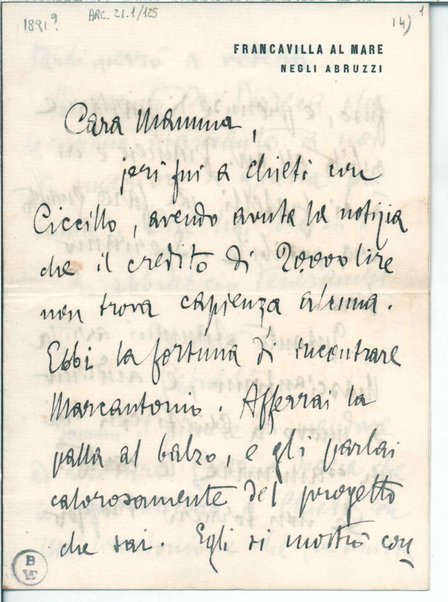 1891?
ARC. 21.1/125
14)
FRANCAVILLA AL MARE
NEGLI ABRUZZI
Cara Mamma,
jeri fui a Chieti con
Ciccillo, avendo avuta la notizia
che il credito di 20.000 lire
non trova capienza alcuna.
Ebbi la fortuna di incontrare
Marcantonio. Afferrai la
palla al balzo, e gli parlai
calorosamente del progetto
che sai. Egli si mostrò con
B
VE